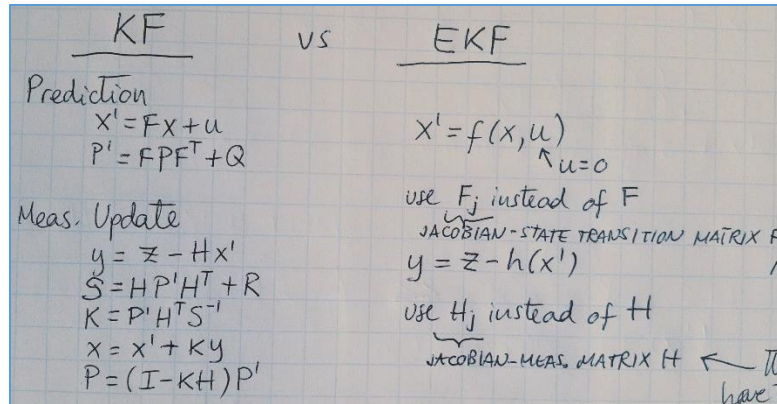 KF vs EKF
Prediction
x' = Fx + u
P' = FPFᵀ + Q
Meas. Update
y = z - Hx'
S = HP'Hᵀ + R
K = P'HᵀS⁻¹
x = x' + Ky
P = (I - KH)P'
x' = f(x, u)
u=0
use Fj instead of F
JACOBIAN-STATE TRANSITION MATRIX F
y = z - h(x')
use Hj instead of H
JACOBIAN-MEAS. MATRIX H ←
have